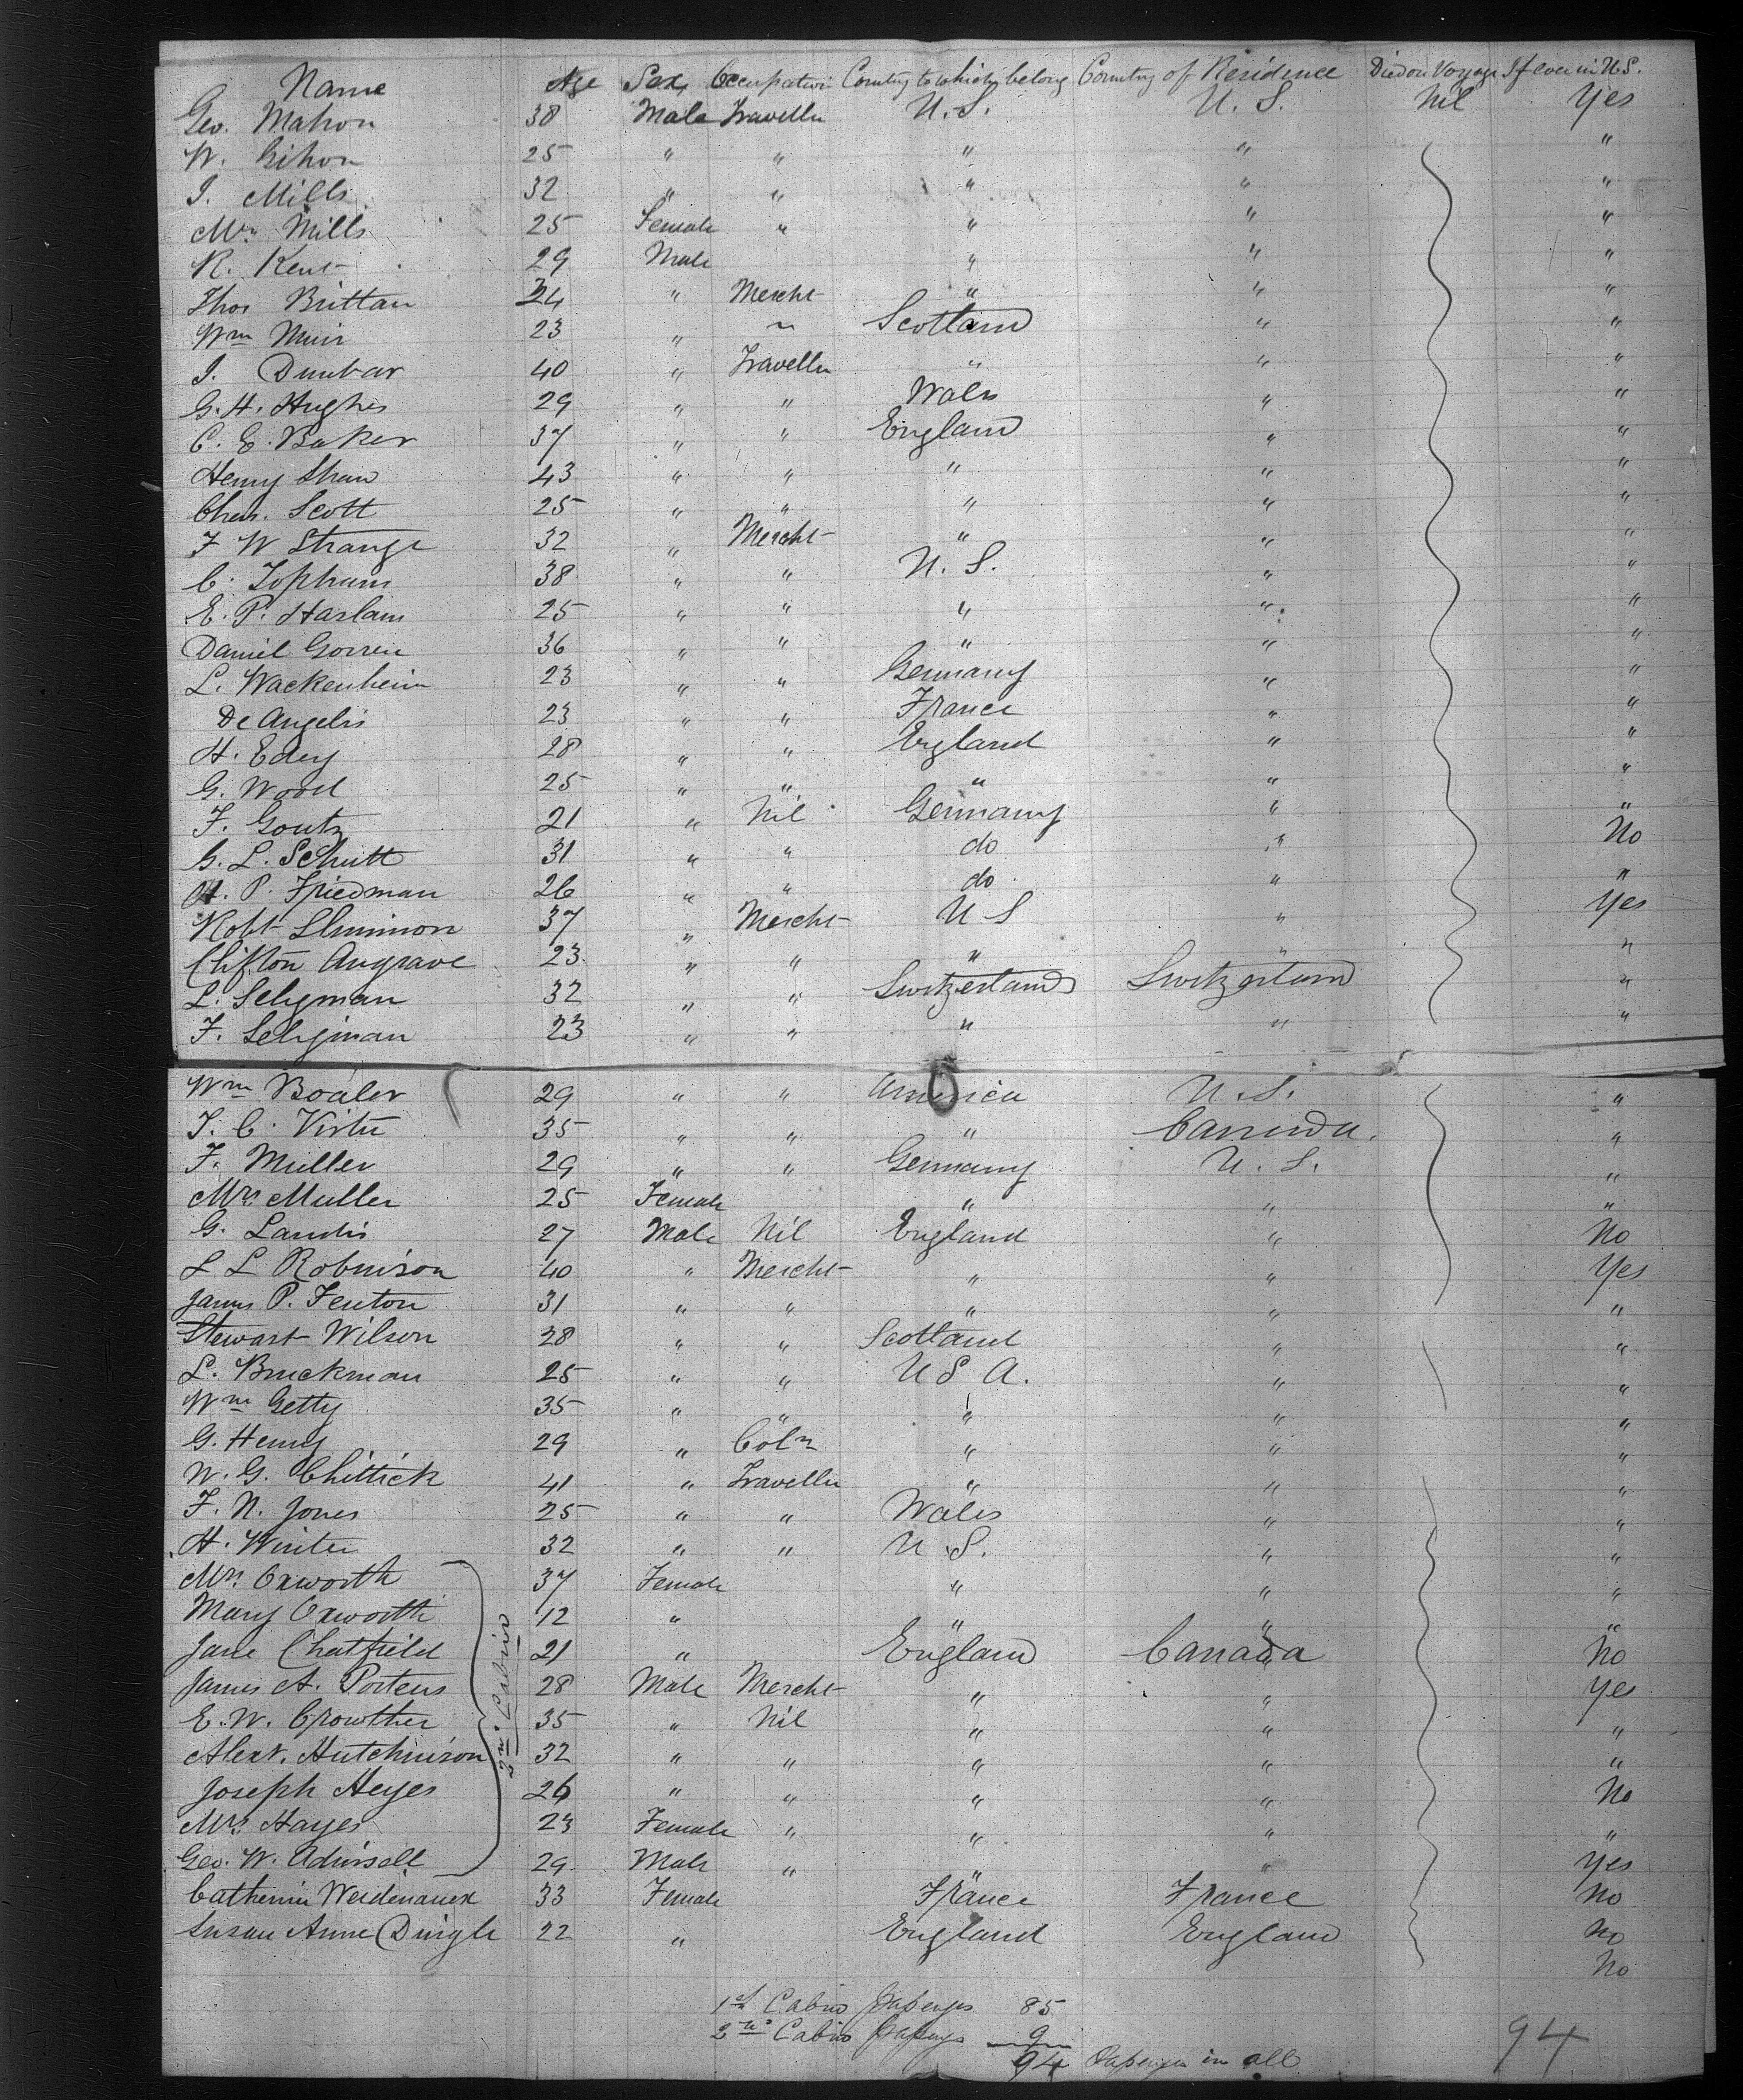 Name Age Sex Occupation Country to which belong Country of Residence Died on Voyage If ever in U.S.
Geo. Mahon 38 Male Traveller U.S. U.S. Nil Yes
W. Gihon 25 " " " " "
I. Mills 32 " " " " "
Mrs Mills 25 Female " " " "
R. Kent 29 Male " " "
Thos Brittan 24 " Mercht " " "
Wm Muir 23 " " Scotland " "
I. Dunbar 40 " Traveller " " "
G. H. Hughes 29 " " Wales " "
C. E. Baker 37 " " England " "
Henry Shaw 43 " " " " "
Chas. Scott 25 " " " " "
F W Strange 32 " Mercht " " "
C. Topham 38 " " U.S. " "
E. P. Haslam 25 " " " " "
Daniel Gorren 36 " " " " "
L. Wackenheim 23 " " Germany " "
De Angelis 23 " " France " "
H. Edey 28 " " England " "
G. Wood 25 " " " " "
F. Goutz 21 " Nil Germany " "
G. L. Schutt 31 " " do " No
H. P. Friedman 26 " " do " "
Robt 37 " Mercht U S " Yes
Clifton Angrave 23 " " " " "
L. Seligman 32 " " Switzerland Switzerland "
F. Seligman 23 " " " " "
Wm Boaler 29 " " America U.S. "
T. C. Virtu 35 " " " Canada. "
F. Muller 29 " " Germany U.S. "
Mrs Muller 25 Female " " "
G. Landis 27 Male Nil England " No
L L Robinson 40 " Mercht " " Yes
James P. Fenton 31 " " " " "
Stewart Wilson 28 " " Scotland " "
L. Bruckman 25 " " U S A. " "
Wm Getty 35 " " " " "
G. Henry 29 " Coln " " "
W. G. Chittick 41 " Traveller " " "
F. N. Jones 25 " " Wales " "
H. Winter 32 " " U.S. " "
Mrs Oxworth 37 Female " " "
Mary Oxworth 12 " " " "
Jane Chatfield 21 " England Canada No
2nd Cabin
James A. Porteus 28 Male Mercht " " Yes
E. W. Crowther 35 " Nil " " "
Alexr. Hutchinson 32 " " " " "
Joseph Heyes 26 " " " " No
Mrs Hayes 23 Female " " " "
Geo. W. 29 Male " " " Yes
Catherine Weidenauer 33 Female France France No
Susan Anne Dingle 22 " England England No
No
1st Cabin Passengers 85
2nd Cabin Passengers 9
94 Passengers in all 94